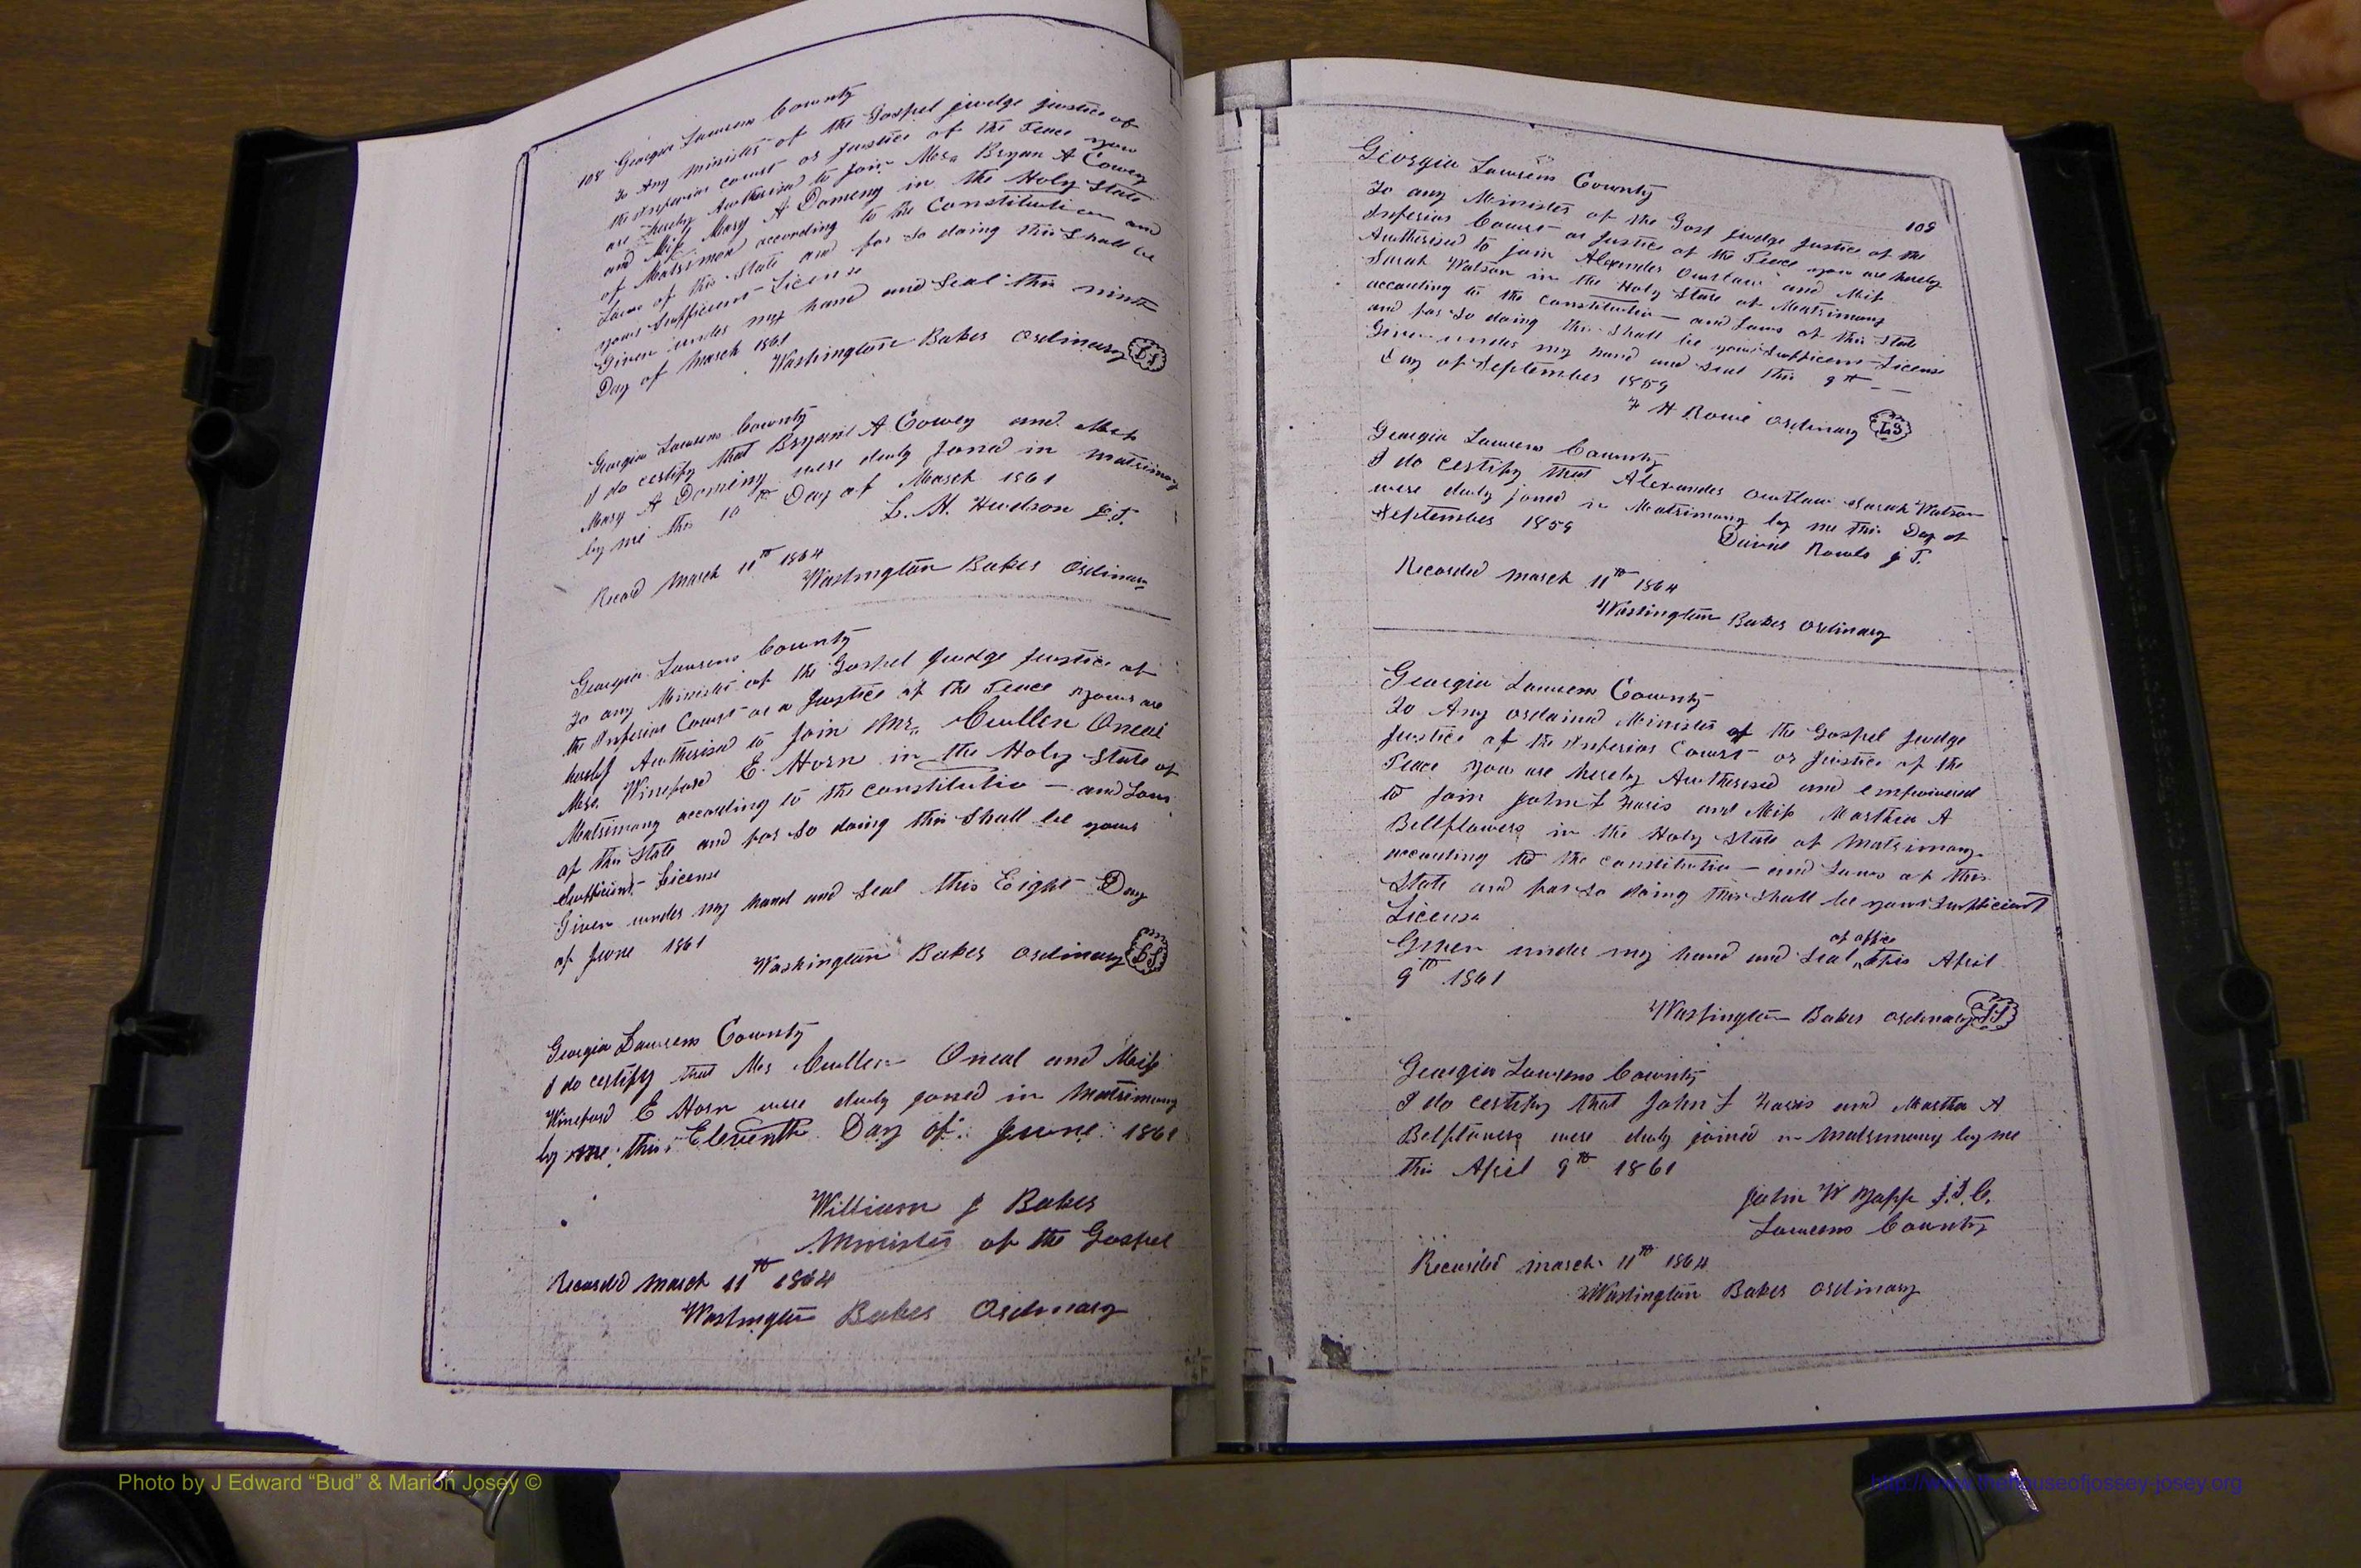 108 Georgia Laurens County
To Any Minister of the Gospel judge justice of
the Inferior court or Justice of the Peace you
are hereby Autherised to join Mr. Bryan A Cowey
and Miss Mary A Domeny in the Holy State
of Matrimon according to the Constitution and
Laws of this State and for so doing this Shall be
your Sufficient License
Given under my hand and Seal this ninth
Day of March 1861
Washington Baker Ordinary LS
Georgia Laurens County
I do certify that Bryant A Cowey and Miss
Mary A Domeny were duly Joned in matrimony
by me this 10th Day of March 1861
L. H. Hudson J.P.
Record March 11th 1864
Washington Baker Ordinary
Georgia Laurens County
To any Minister of the Gospel Judge Justice of
the Inferior Court or a Justice of the Peace yours are
hereby Autherised to Join Mr. Cullen Oneal
Mrs. Wineford E. Horn in the Holy State of
Matrimony according to the constitutio – and Laws
of this State and for so doing this Shall be your
Sufficient License
Given under my hand and Seal this Eight Day
of June 1861
Washington Baker Ordinary LS
Georgia Laurens County
I do certify that Mr Cullen Oneal and Miss
Wineford E Horn were duly joned in Matrimony
by me this Eleventh Day of June 1861
William J Baker
Minister of the Gospel
Recorded March 11th 1864
Washington Baker Ordinary
109
Georgia Laurens County
To any Minister of the Gosp judge Justice of the
Inferior Court or Justice of the Peace you are hereby
Autherised to join Alexander Outlaw and Miss
Sarah Watson in the Holy State of Matrimony
according to the constitutio – and Laws of this State
and for so doing this Shall be your Sufficient License
Given under my hand and seal this 9th
Day of September 1859
F H Rowe Ordinary LS
Georgia Laurens County
I do certify that Alexander Outlaw Sarah Watson
were duly joned in Matrimony by me this Day of
September 1859
David Rowls J P.
Recorded March 11th 1864
Washington Baker Ordinary
Georgia Laurens County
To Any ordained Minister of the Gospel Judge
Justice of the Inferior Court or Justice of the
Peace you are hereby Autherised and empowered
to Join John F Faris and Miss Marthia A
Bellflowers in the Holy State of Matrimony
according to the constitutio – and Laws of this
State and for so doing this Shall be your Sufficient
License
Given under my hand and Seal of office this April
9th 1861
Washington Baker Ordinary LS
Georgia Laurens County
I do certify that John F Farris and Martha A
Belflowers were duly joined in Matrimony by me
this April 9th 1861
John W Yapp J.I.C.
Laurens County
Recorded March 11th 1864
Washington Baker Ordinary
Photo by J Edward “Bud” & Marion Josey ©
http://www.thehouseofjossey-josey.org